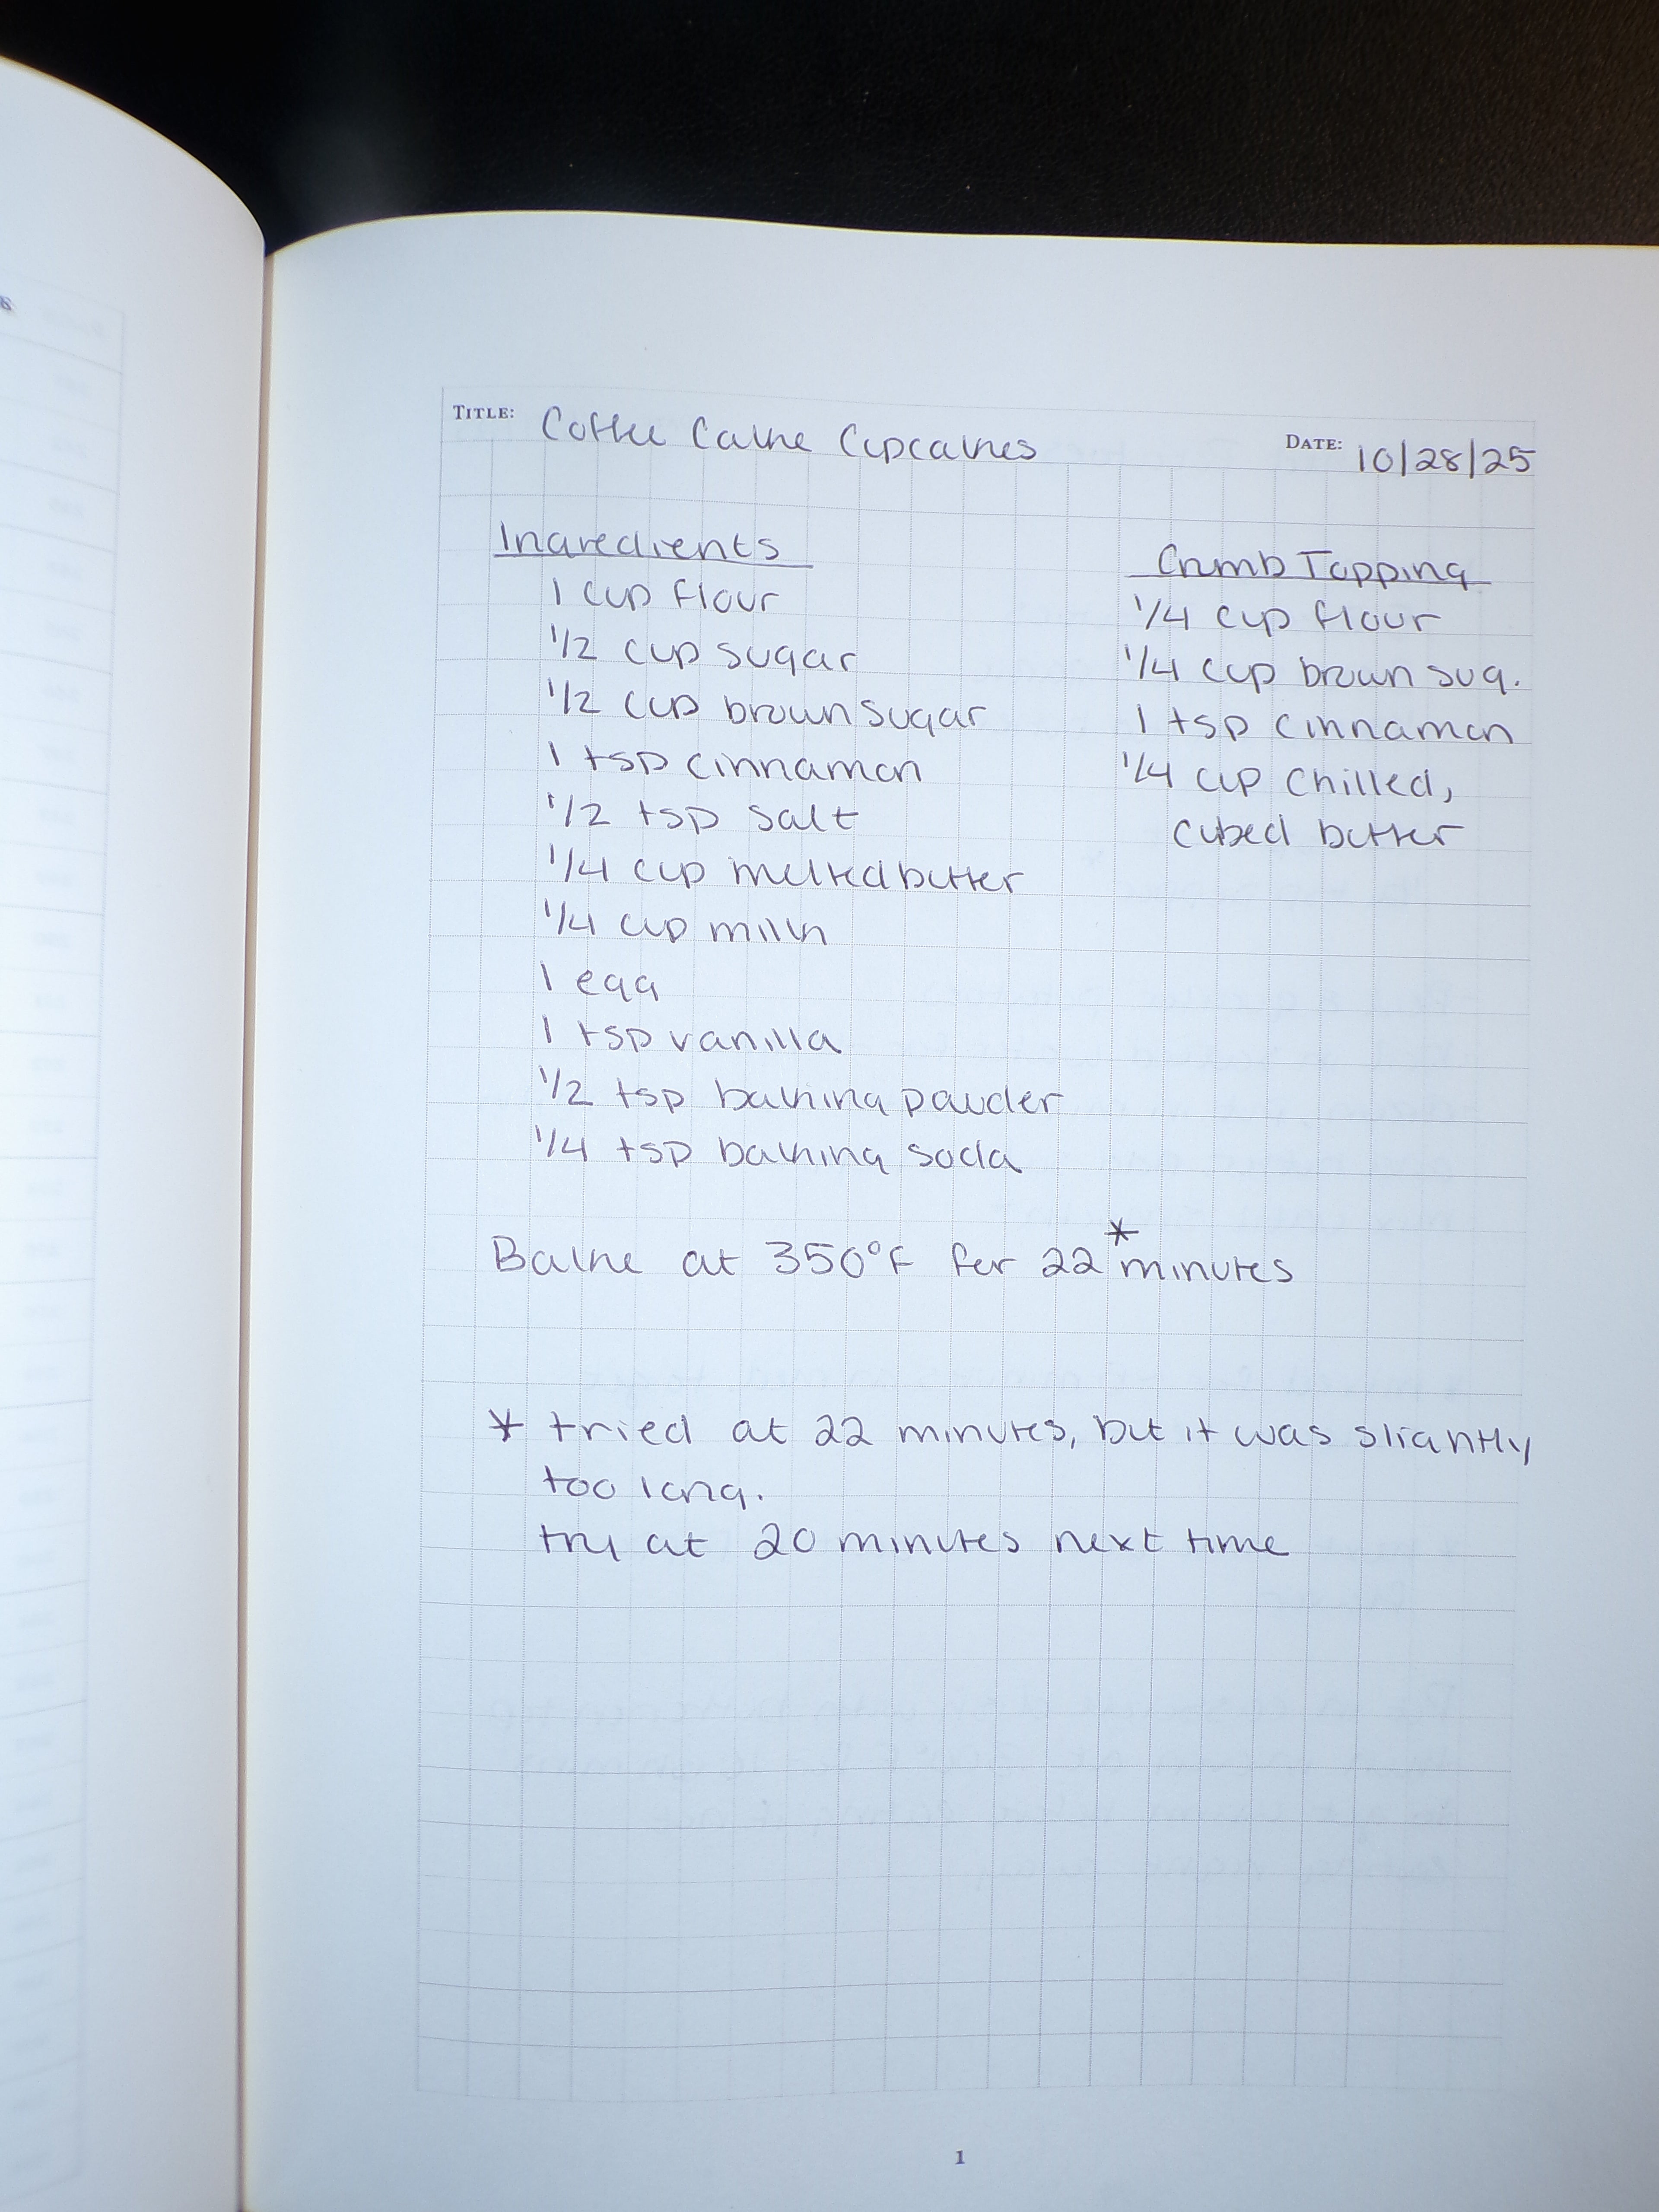 TITLE: Coffee Cake Cupcakes
DATE: 10/28/25
Ingredients
1 cup flour
1/2 cup sugar
1/2 cup brown sugar
1 tsp cinnamon
1/2 tsp salt
1/4 cup melted butter
1/4 cup milk
1 egg
1 tsp vanilla
1/2 tsp baking powder
1/4 tsp baking soda
Crumb Topping
1/4 cup flour
1/4 cup brown sug.
1 tsp cinnamon
1/4 cup chilled,
cubed butter
Bake at 350°F for 22* minutes
* tried at 22 minutes, but it was slightly
too long.
try at 20 minutes next time
1